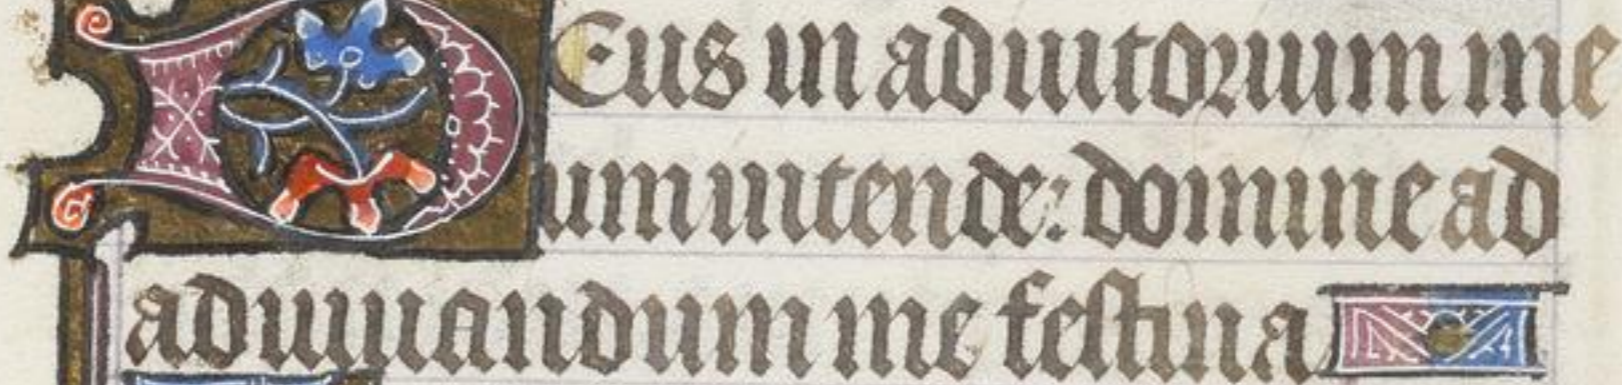 Deus in adiutorium me
um intende: domine ad
adiuuandum me festina